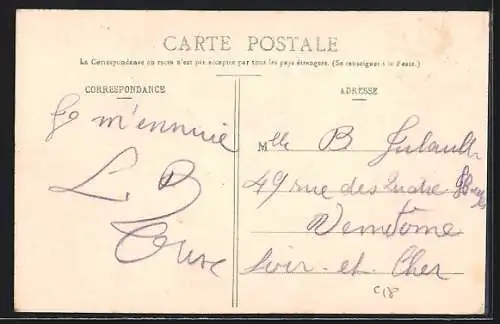 CARTE POSTALE
La Correspondance au recto n'est pas acceptée par tous les pays étrangers. (Se renseigner à la Poste.)
CORRESPONDANCE
Je m'ennuie
L B
ADRESSE
Mlle B
49 rue des Quatre
Vendôme
Loir-et-Cher
C18